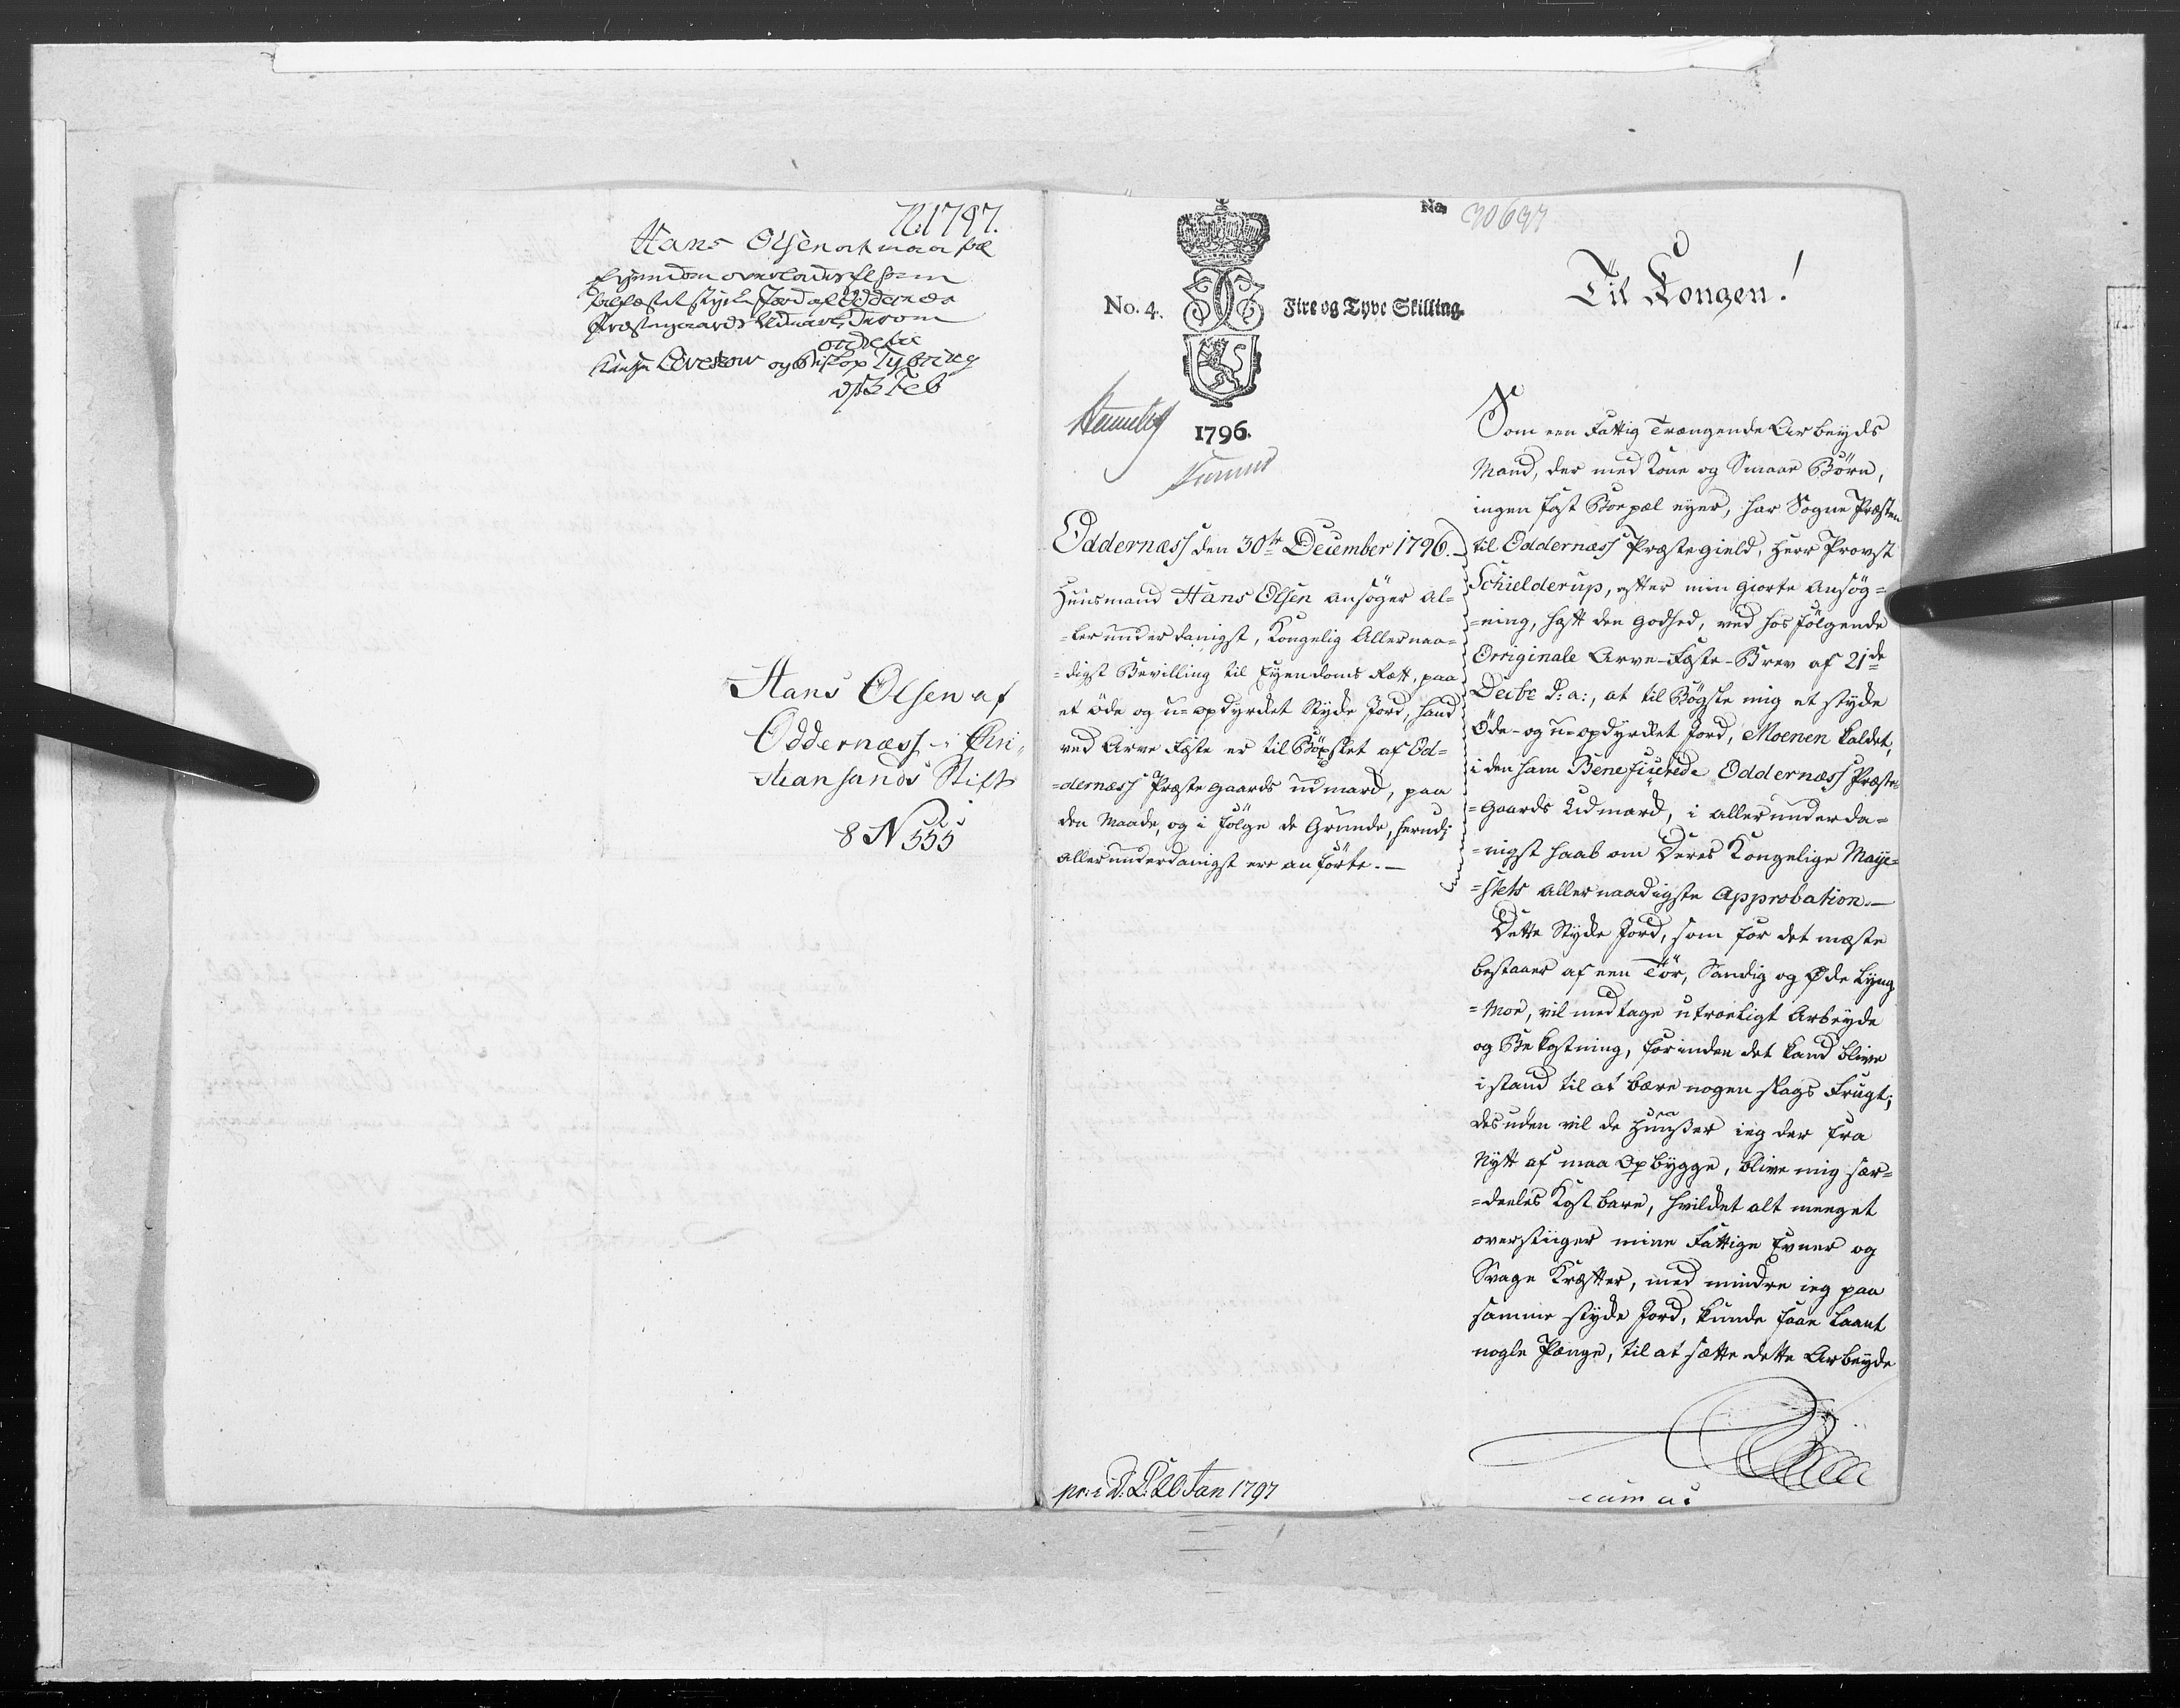 1797.
Hans Olsen at maa faae
Eyendom overladt et ham
stykke Jord af Oddernæs
Præstegaards Udmark, derom
Levetzow og Biskop Tybring
d 3 Feb
Hans Olsen af
Oddernæss i Chri-
stiansands Stift
8 N 555
No. 4.
Fire og Tyve Skilling.
1796.
Oddernæss den 30te December 1796.
Huusmand Hans Olsen ansöger al-
=lerunderdanigst, Kongelig Allernaa-
=digst Bevilling til Eyendoms Rett, paa
et öde og u-opdyrket Stykke Jord, hand
ved Arve Fæste er til Böxlet af Od-
=dernæss Præstegaards udmark, paa
den Maade, og i fölge de Grunde, herudi
allerunderdanigst ere anförte.—
pr: i D: C: 26 Jan 1797
No. 30637
Til Kongen!
Som een Fattig Trængende Arbeyds
Mand, der med Kone og Smaae Börn,
ingen fast Boepæl eyer, har Sogne Præsten
til Oddernæss Præstegield, Herr Provst
Schielderup, efter min giorte Ansög=
=ning, haft den Godhed, ved hos fölgende
Orriginale Arve-Fæste-Brev af 21de
Decbr d: a:, at til Bögsle mig et stykke
Öde- og u-opdyrket Jord, Moenen kaldet,
i den ham Beneficerede Oddernæss Præste-
=Gaards Udmark, i allerunderda=
=nigst haab om Deres Kongelige Maye=
=stets allernaadigste Approbation.—
Dette Stykke Jord, som for det mæste
bestaaer af een Tör, Sandig og Øde Lyng
=Moe, vil medtage utroeligt Arbeyde
og Bekostning, forinden det kand blive
i stand til at bære nogen slags Frugt;
desuden vil de Huuser ieg der fra
Nytt af maa Opbygge, blive mig sær=
=deeles Kostbare, hvilket alt meeget
overstiiger mine Fattige Evner og
Svage Kræfter, med mindre ieg paa
samme stykke Jord, kunde faae laant
nogle Penge, til at sætte dette Arbeyde
cum a: